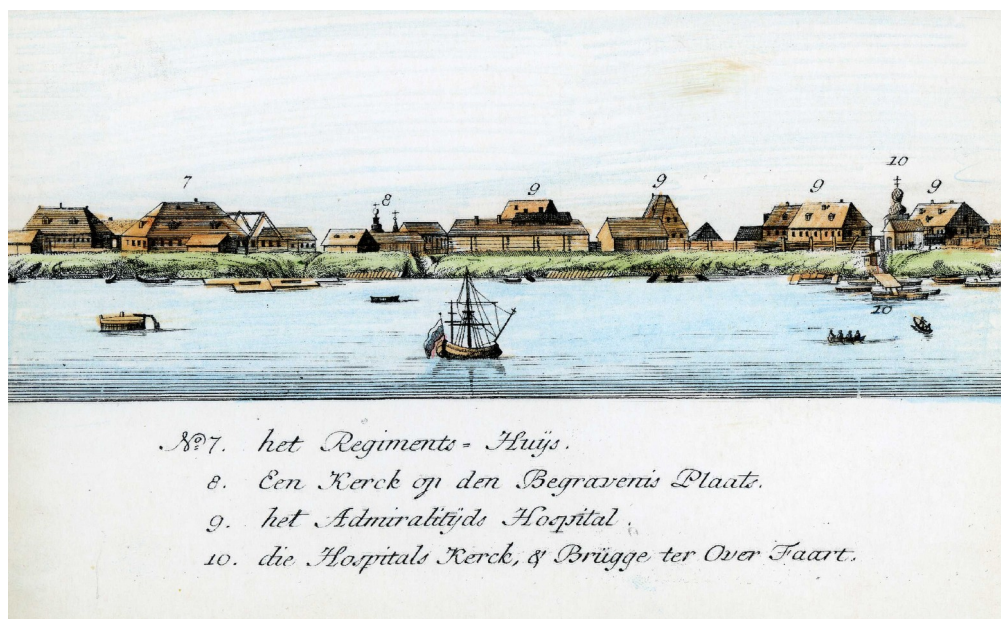 7
8
9
9
9
10
9
10
No. 7. het Regiments = Huÿs.
8. Een Kerck op den Begravenis Plaats.
9. het Admiralitÿds Hospital.
10. die Hospitals Kerck, & Brügge ter Over Faart.